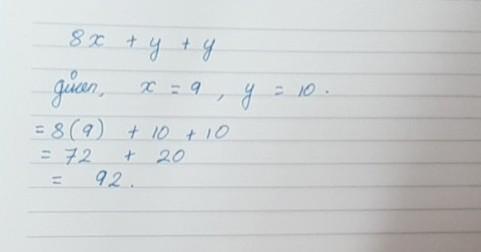 8x + y + y
given, x = 9 , y = 10 .
= 8(9) + 10 + 10
= 72 + 20
= 92 .